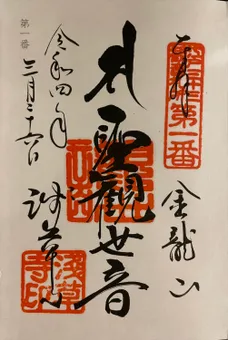 奉拝
第一番
金龍山
聖観世音
浅草寺
浅草寺印
令和四年
三月二十六日
第一番